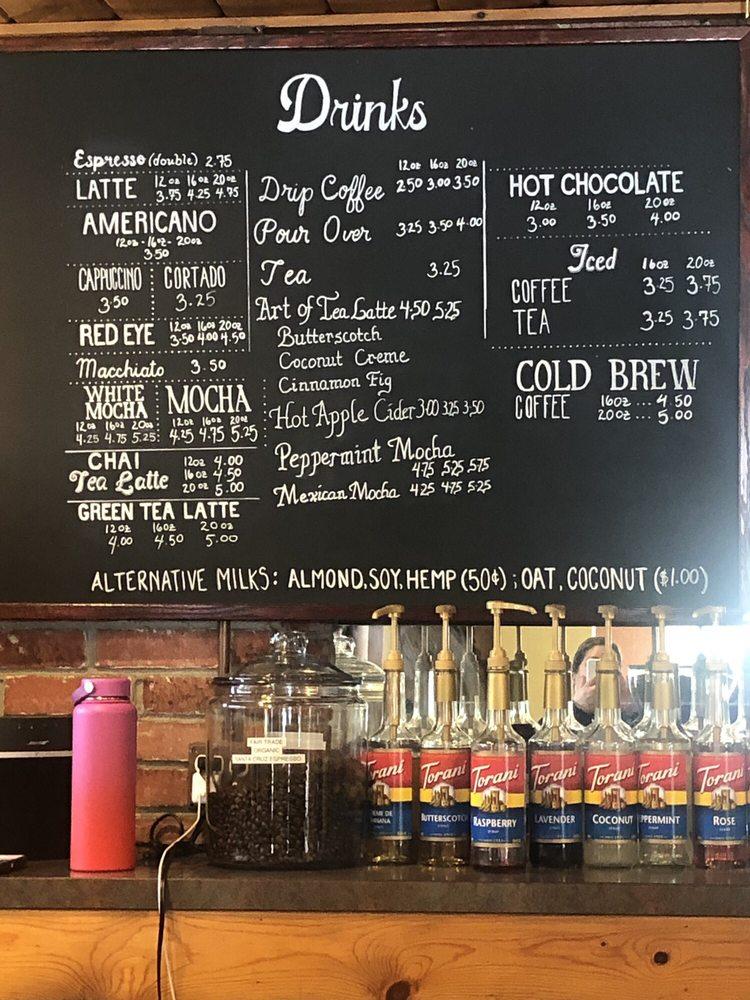 Drinks
Espresso (double) 2.75
LATTE 12oz 16oz 20oz
3.75 4.25 4.75
AMERICANO
12oz - 16oz - 20oz
3.50
CAPPUCCINO CORTADO
3.50 3.25
RED EYE 12oz 16oz 20oz
3.50 4.00 4.50
Macchiato 3.50
WHITE MOCHA MOCHA
12oz 16oz 20oz 12oz 16oz 20oz
4.25 4.75 5.25 4.25 4.75 5.25
CHAI 12oz 4.00
Tea Latte 16oz 4.50
20oz 5.00
GREEN TEA LATTE
12oz 16oz 20oz
4.00 4.50 5.00
12oz 16oz 20oz
Drip Coffee 2.50 3.00 3.50
Pour Over 3.25 3.50 4.00
Tea 3.25
Art of Tea Latte 4.50 5.25
Butterscotch
Coconut Creme
Cinnamon Fig
Hot Apple Cider 3.00 3.25 3.50
Peppermint Mocha
4.75 5.25 5.75
Mexican Mocha 4.25 4.75 5.25
HOT CHOCOLATE
12oz 16oz 20oz
3.00 3.50 4.00
Iced 16oz 20oz
COFFEE 3.25 3.75
TEA 3.25 3.75
COLD BREW
COFFEE 16oz ... 4.50
20oz ... 5.00
ALTERNATIVE MILKS: ALMOND, SOY, HEMP (50¢) ; OAT, COCONUT ($1.00)
FAIR TRADE
ORGANIC
SANTA CRUZ ESPRESSO
Torani
Torani
BUTTERSCOTCH
Torani
RASPBERRY
Torani
LAVENDER
Torani
COCONUT
Torani
PEPPERMINT
Torani
ROSE